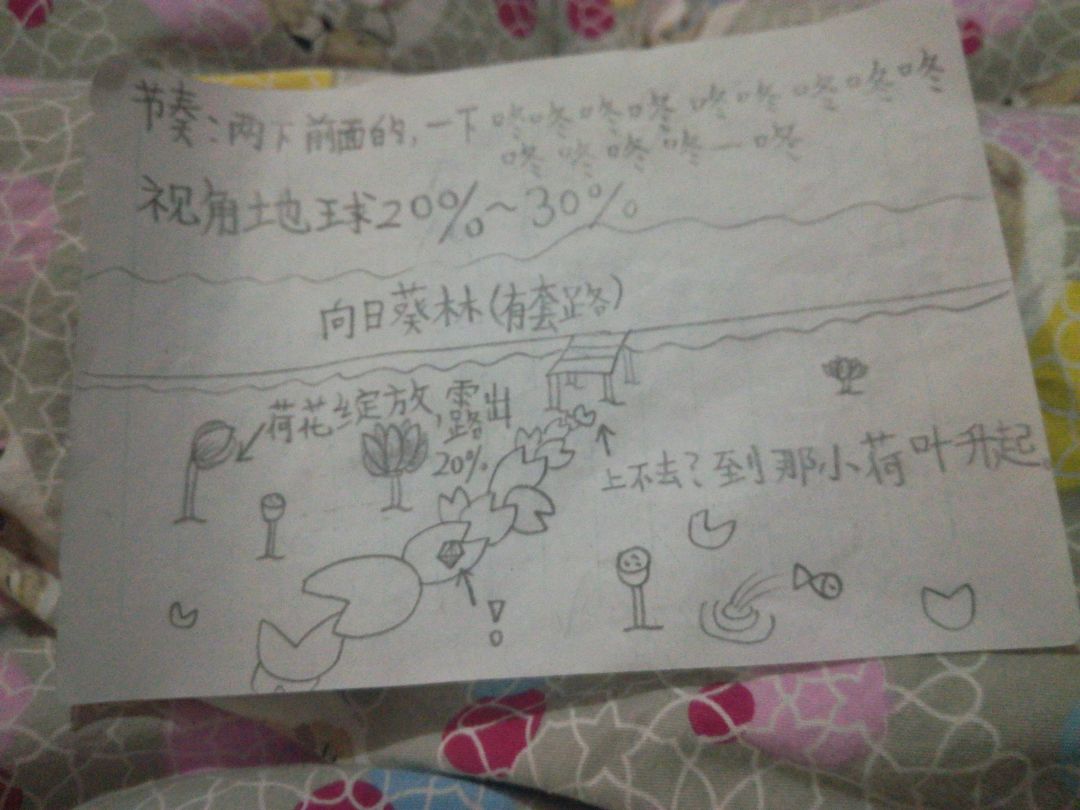 节奏：两下前面的，一下 咚咚咚咚 咚咚 咚咚咚
咚咚咚咚—咚
视角地球20%~30%
向日葵林(有套路)
荷花绽放，露出
20%
上不去？到那小荷叶升起。
!